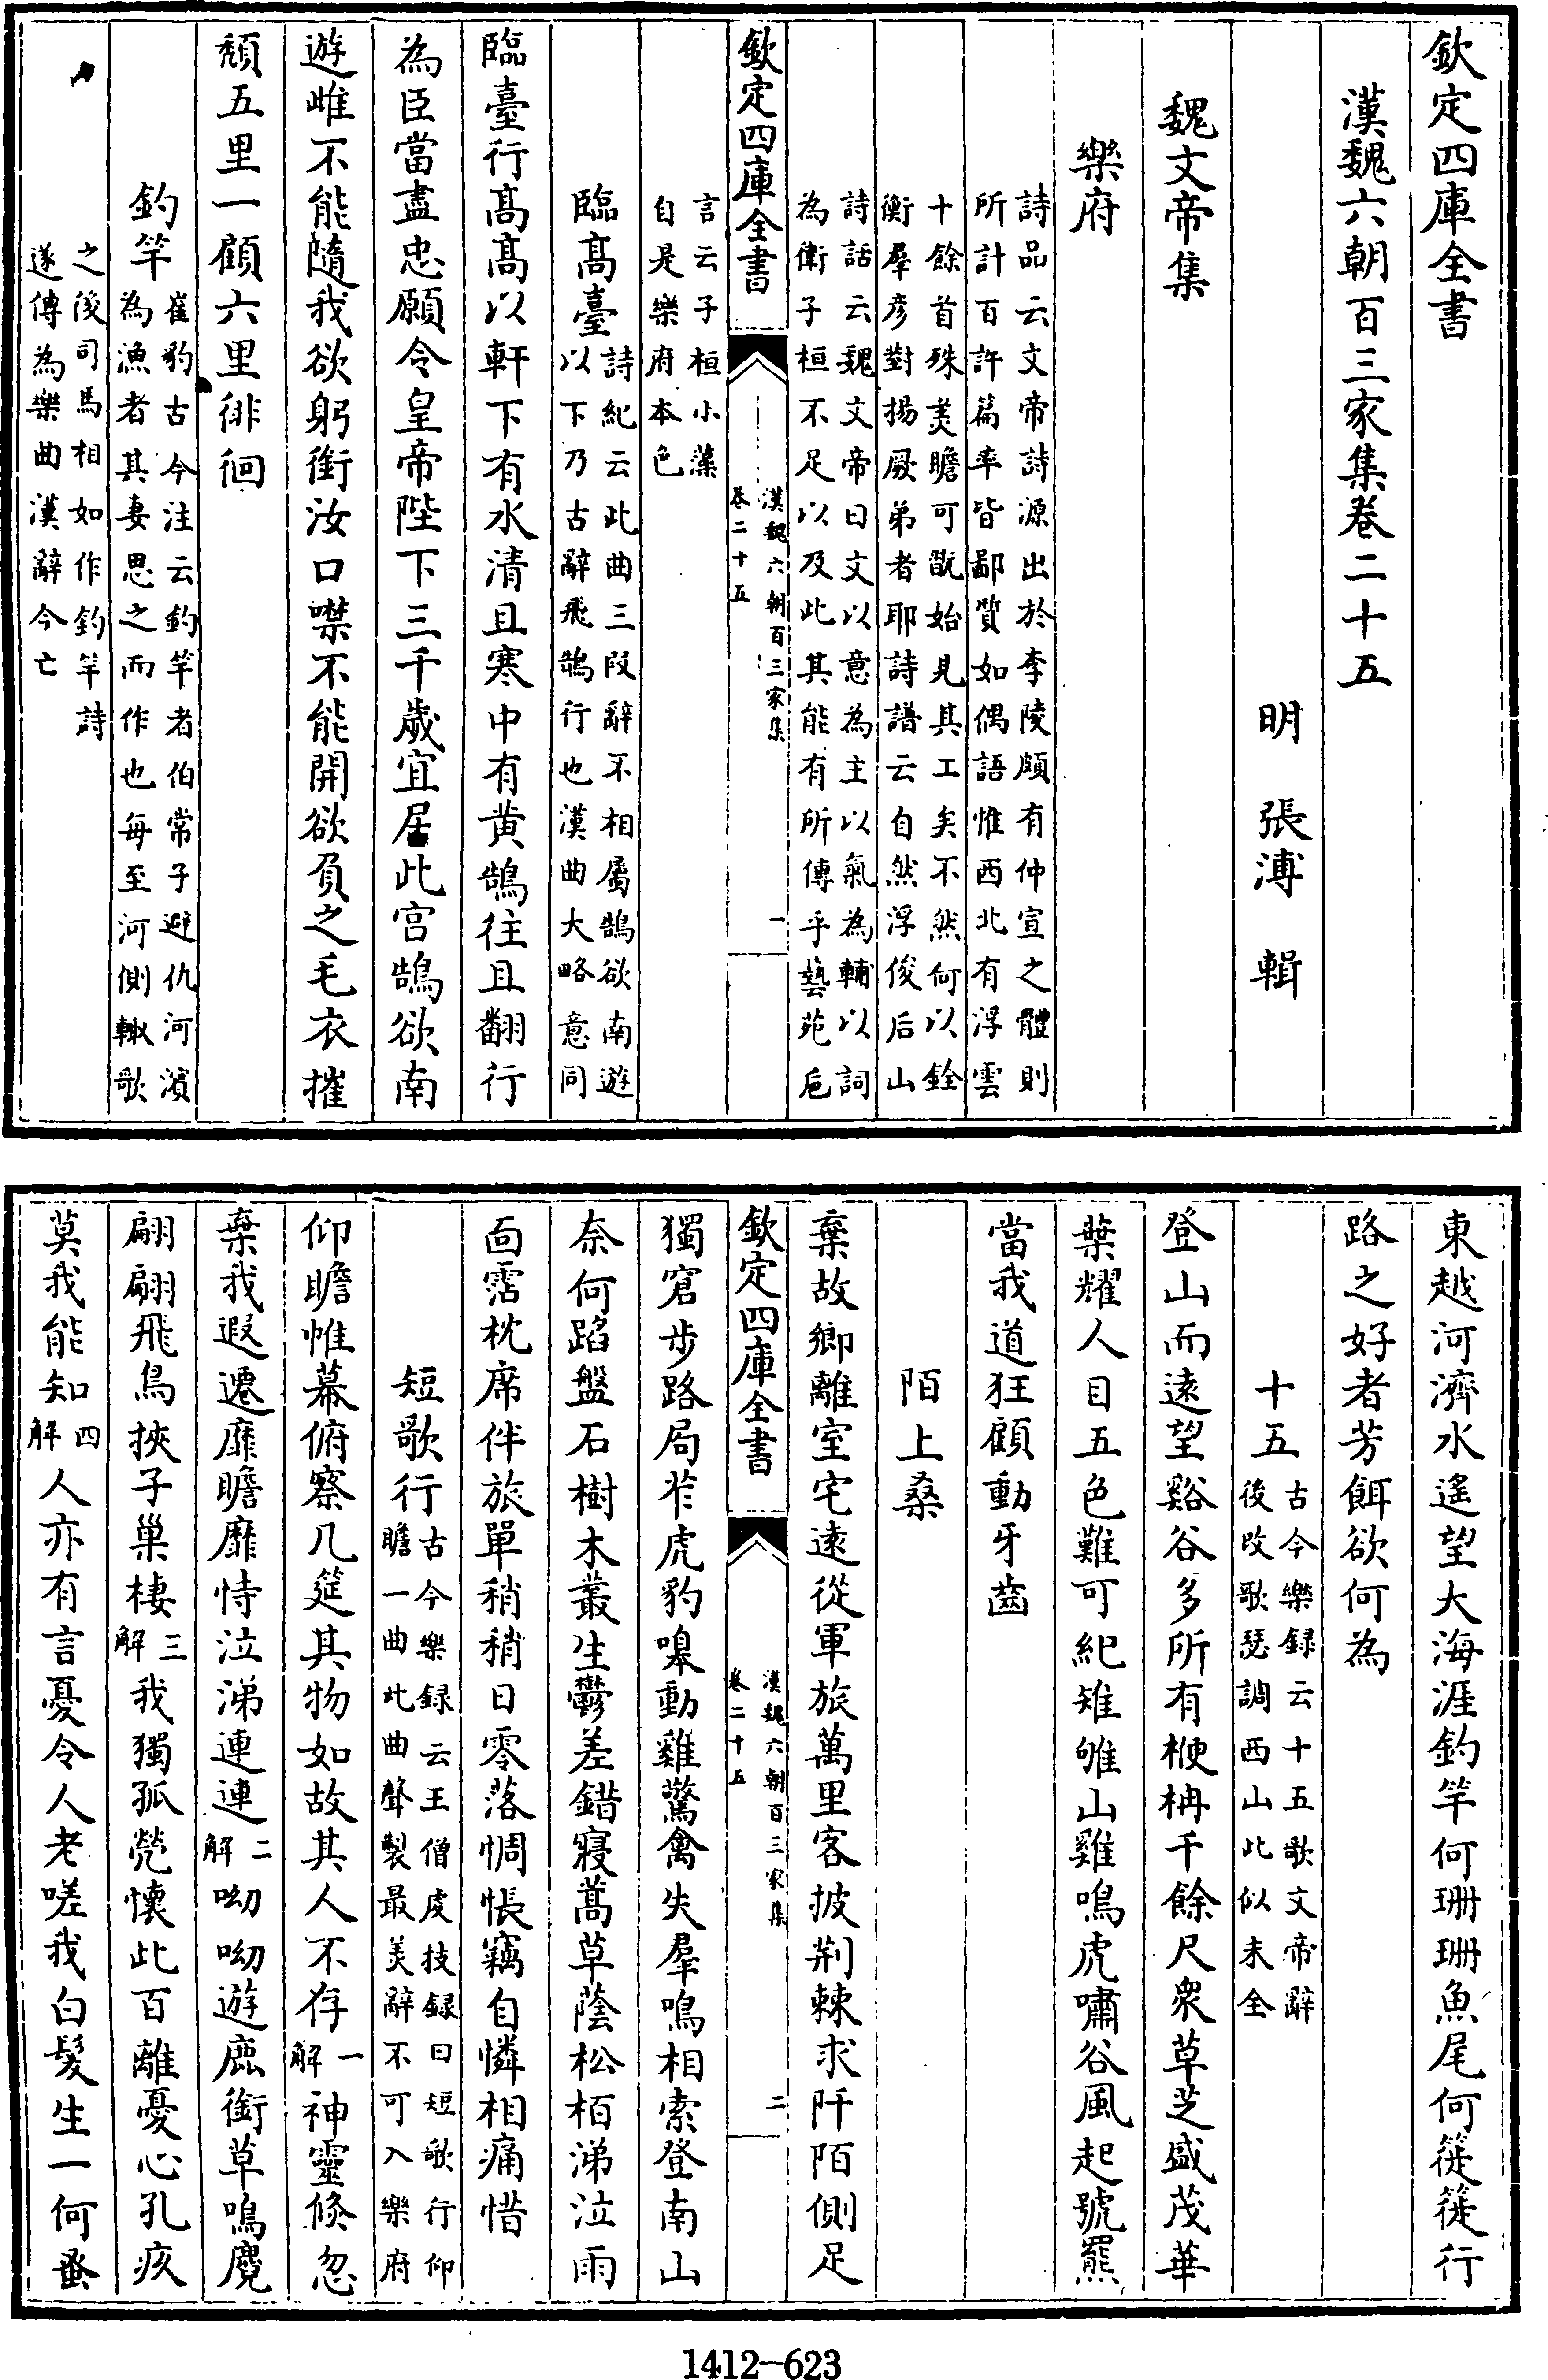 欽定四庫全書
漢魏六朝百三家集卷二十五
明 張溥 輯
魏文帝集
樂府
詩品云文帝詩源出於李陵頗有仲宣之體則
所計百許篇率皆鄙質如偶語惟西北有浮雲
十餘首殊美贍可翫始見其工矣不然何以銓
衡羣彦對揚厥弟者耶詩譜云自然浮俊后山
詩話云魏文帝曰文以意為主以氣為輔以詞
為衛子桓不足以及此其能有所傳乎藝苑巵
欽定四庫全書
漢魏六朝百三家集
卷二十五
一
言云子桓小藻
自是樂府本色
臨高臺
詩紀云此曲三段辭不相屬鵠欲南遊
以下乃古辭飛鵠行也漢曲大略意同
臨臺行高高以軒下有水清且寒中有黄鵠往且翻行
為臣當盡忠願令皇帝陛下三千歲宜居此宫鵠欲南
遊雌不能隨我欲躬銜汝口噤不能開欲負之毛衣摧
頽五里一顧六里徘徊
釣竿
崔豹古今注云釣竿者伯常子避仇河濱
為漁者其妻思之而作也每至河側輙歌
之後司馬相如作釣竿詩
遂傳為樂曲漢辭今亡
東越河濟水遙望大海涯釣竿何珊珊魚尾何簁簁行
路之好者芳餌欲何為
十五
古今樂録云十五歌文帝辭
後改歌瑟調西山此似未全
登山而遠望谿谷多所有楩枏千餘尺衆草芝盛茂華
葉耀人目五色難可紀雉雊山雞鳴虎嘯谷風起號羆
當我道狂顧動牙齒
陌上桑
棄故鄉離室宅遠從軍旅萬里客披荆棘求阡陌側足
欽定四庫全書
漢魏六朝百三家集
卷二十五
二
獨窘步路局苲虎豹嘷動雞驚禽失羣鳴相索登南山
奈何蹈盤石樹木叢生鬱差錯寢蒿草蔭松栢涕泣雨
面霑枕席伴旅單稍稍日零落惆悵竊自憐相痛惜
短歌行
古今樂録云王僧虔技録曰短歌行仰
瞻一曲此曲聲製最美辭不可入樂府
仰瞻惟幕俯察几筵其物如故其人不存一解神靈倐忽
棄我遐遷靡瞻靡恃泣涕連連二解呦呦遊鹿銜草鳴麑
翩翩飛鳥挾子巢棲三解我獨孤煢懷此百離憂心孔疚
莫我能知四解人亦有言憂令人老嗟我白髮生一何蚤
1412-623